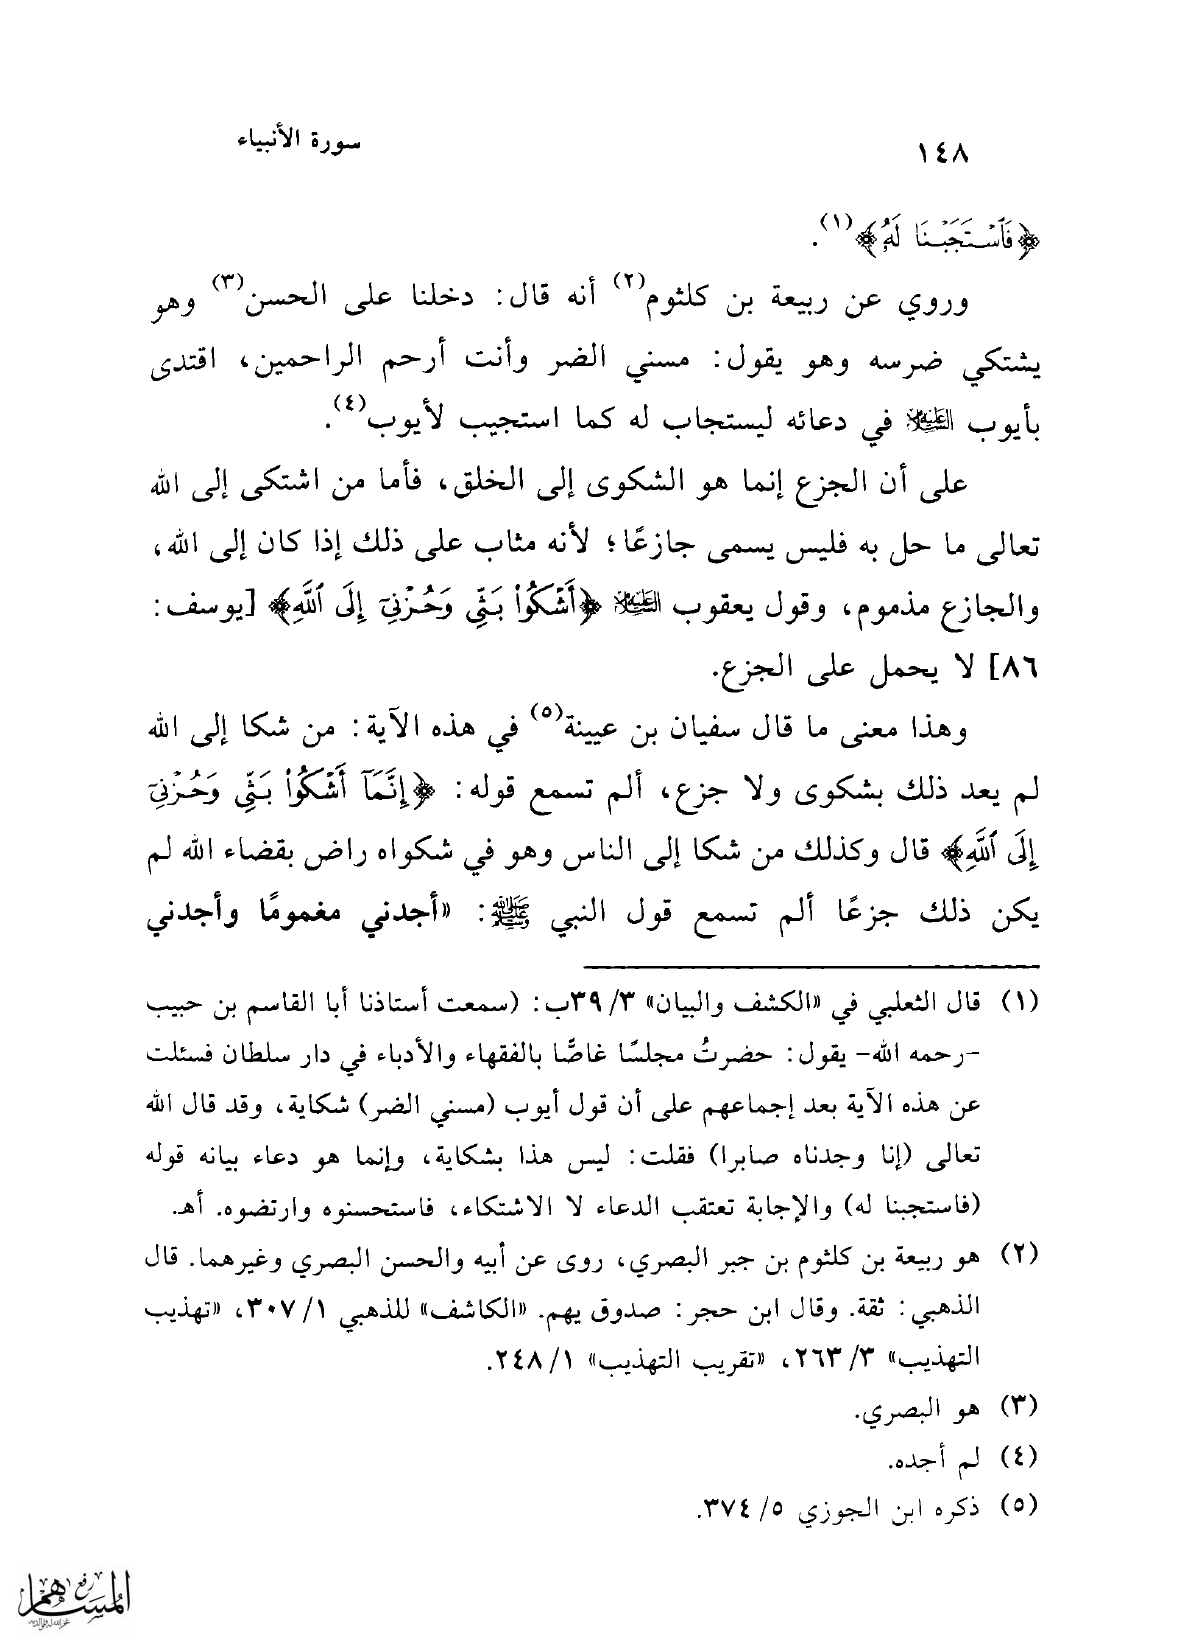 ١٤٨
سورة الأنبياء
﴿فَٱسْتَجَبْنَا لَهُۥ﴾(١).
وروي عن ربيعة بن كلثوم(٢) أنه قال: دخلنا على الحسن(٣) وهو
يشتكي ضرسه وهو يقول: مسني الضر وأنت أرحم الراحمين، اقتدى
بأيوب عليه السلام في دعائه ليستجاب له كما استجيب لأيوب(٤).
على أن الجزع إنما هو الشكوى إلى الخلق، فأما من اشتكى إلى الله
تعالى ما حل به فليس يسمى جازعًا؛ لأنه مثاب على ذلك إذا كان إلى الله،
والجازع مذموم، وقول يعقوب عليه السلام ﴿أَشْكُوا۟ بَثِّى وَحُزْنِىٓ إِلَى ٱللَّهِ﴾ [يوسف:
٨٦] لا يحمل على الجزع.
وهذا معنى ما قال سفيان بن عيينة(٥) في هذه الآية: من شكا إلى الله
لم يعد ذلك بشكوى ولا جزع، ألم تسمع قوله: ﴿إِنَّمَآ أَشْكُوا۟ بَثِّى وَحُزْنِىٓ
إِلَى ٱللَّهِ﴾ قال وكذلك من شكا إلى الناس وهو في شكواه راض بقضاء الله لم
يكن ذلك جزعًا ألم تسمع قول النبي ﷺ: «أجدني مغمومًا وأجدني
(١) قال الثعلبي في «الكشف والبيان» ٣/ ٣٩ب: (سمعت أستاذنا أبا القاسم بن حبيب
-رحمه الله- يقول: حضرتُ مجلسًا غاصًّا بالفقهاء والأدباء في دار سلطان فسئلت
عن هذه الآية بعد إجماعهم على أن قول أيوب (مسني الضر) شكاية، وقد قال الله
تعالى (إنا وجدناه صابرا) فقلت: ليس هذا بشكاية، وإنما هو دعاء بيانه قوله
(فاستجبنا له) والإجابة تعتقب الدعاء لا الاشتكاء، فاستحسنوه وارتضوه. أهـ.
(٢) هو ربيعة بن كلثوم بن جبر البصري، روى عن أبيه والحسن البصري وغيرهما. قال
الذهبي: ثقة. وقال ابن حجر: صدوق يهم. «الكاشف» للذهبي ١/ ٣٠٧، «تهذيب
التهذيب» ٣/ ٢٦٣، «تقريب التهذيب» ١/ ٢٤٨.
(٣) هو البصري.
(٤) لم أجده.
(٥) ذكره ابن الجوزي ٥/ ٣٧٤.